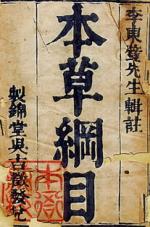 李東璧先生輯註
本草綱目
製錦堂吳